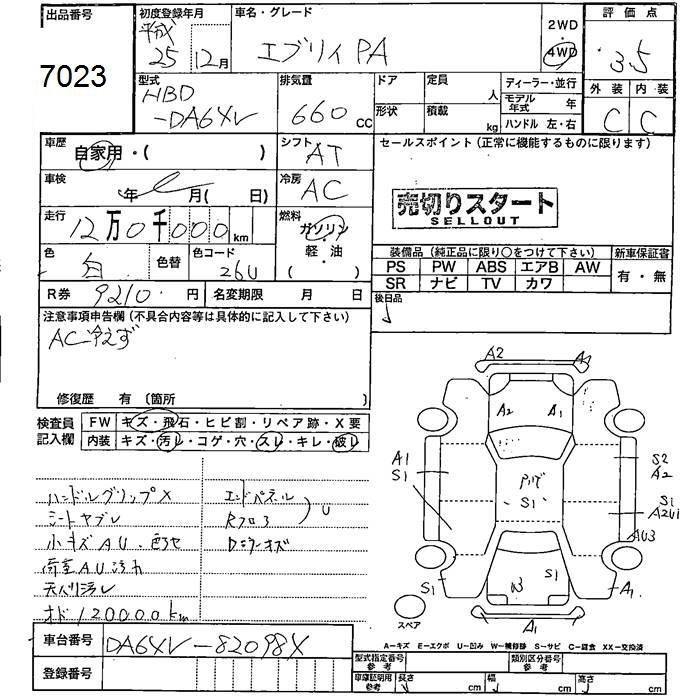 出品番号
7023
初度登録年月
平成
25
12月
車名・グレード
エブリィ PA
2WD
・
4WD
評価点
3.5
外装 内装
C C
型式
HBD
-DA64V
排気量
660 cc
ドア
定員
人
形状
積載
kg
ディーラー・並行
モデル年式 年
ハンドル 左・右
車歴
自家用・( )
シフト
AT
セールスポイント(正常に機能するものに限ります)
車検
年 月( 日)
冷房
AC
売切りスタート
SELLOUT
走行
12万0千000 km
燃料
ガソリン
・
軽・油
( )
色
白
色替
色コード
26U
装備品(純正品に限り○をつけて下さい)
新車保証書
PS PW ABS エアB AW
有・無
SR ナビ TV カワ
R券 9210 円
名変期限 月 日
後日品
注意事項申告欄(不具合内容等は具体的に記入して下さい)
AC冷えず
修復歴 有〔箇所 〕
検査員
記入欄
FW キズ・飛石・ヒビ割・リペア跡・X要
内装 キズ・汚レ・コゲ・穴・スレ・キレ・破レ
ハンドルグリップX
シートヤブレ
小キズAU・色アセ
荷室AU汚れ
天入リ汚レ
オド120000km
エンドパネル
Rフロア
U
A2
A1
A2
A1
A1
S1
S2
A2
S1
S1
A2U1
AU3
S1
W
S1
A1
A1
スペア
A-キズ E-エクボ U-凹み W-補修跡 S-サビ C-腐食 XX-交換済
車台番号
DA64V-82098X
登録番号
型式指定番号
参考
類別区分番号
参考
車庫証明用
参考
長さ cm
幅 cm
高さ cm